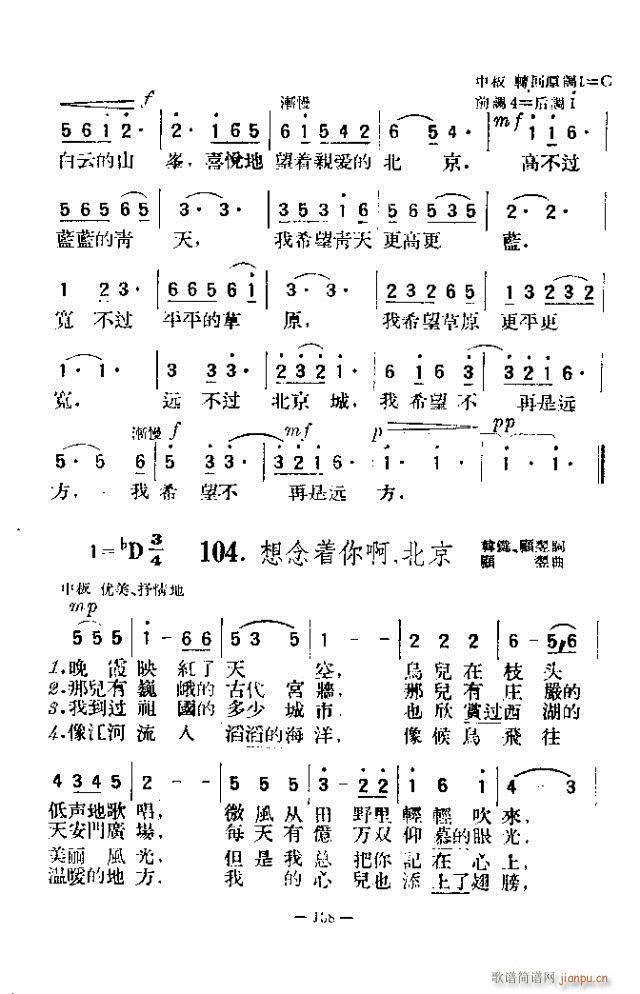 中板 轉回原調1=C
漸慢 前調4=后調1
f mf
5 6 1 2· 2· 1 6 5 6 1 5 4 2 6 5 4· 1 1 6·
白云的山 峯，喜悅地 望着親爱的 北 京． 高不过
5 6 5 6 5 3· 3· 3 5 3 5 3 1 6 5 6 5 4 5 2· 2·
藍藍的青 天， 我希望青天 更高更 藍．
1 2 3· 6 6 5 6 1 3· 3· 2 3 2 6 5 1 3 2 3 2
寬 不过 平平的草 原， 我希望草原 更平更
1· 1· 3 3 3 2 3 2 1 6 1 6 3 3 2 1 6·
寬． 远 不过 北京 城，我 希望 不 再是远
漸慢 f mf p pp
5· 5 6 5 3 3· 3 2 1 6 1· 1· 1· 1·
方，我 希 望不 再是远 方．
1=♭D 3/4 104. 想念着你啊，北京 韓鍇、顧翌詞
顧 翌曲
中板 优美、抒情地
mp
5 5 5 1 - 6 6 5 3 5 5 - - 2 2 2 6 - 5 6
1.晚霞映 紅了 天 空， 鳥兒在 枝头
2.那兒有 巍 峨的 古代 宮牆， 那兒有 庄 嚴的
3.我到过 祖 國的 多少 城市， 也欣賞过 西 湖的
4.像江河 流 入 滔滔的海洋， 像候鳥 飛 往
4 3 4 5 2 - - 5 5 5 3 - 2 2 1 6 1 4 - 3
低声地歌 唱， 微風从 田 野里 輕輕 吹來，
天安門廣 場， 每天有 億 万双 仰慕的眼 光．
美丽 風光， 但是我 总 把你 記在 心上，
温暖的地 方． 我 的 心 兒也 添上了翅 膀，
— 108 —
歌谱简谱网 jianpu.cn